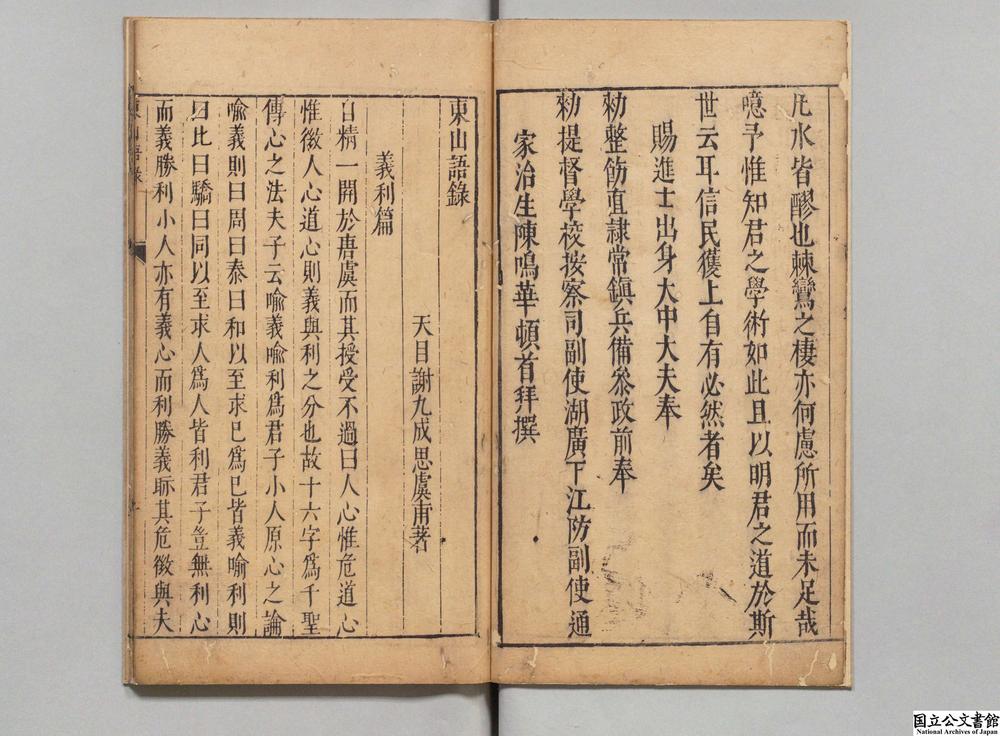 凡水皆醪也棘鸞之棲亦何慮所用而未足哉
噫予惟知君之學術如此且以明君之道於斯
世云耳信民獲上自有必然者矣
賜進士出身大中大夫奉
勑整飭直隷常鎭兵備叅政前奉
勑提督學校按察司副使湖廣下江防副使通
家治生陳鳴華頓首拜撰
東山語錄
天目謝九成思虞甫著
義利篇
自精一開於唐虞而其授受不過曰人心惟危道心
惟微人心道心則義與利之分也故十六字爲千聖
傳心之法夫子云喻義喻利爲君子小人原心之論
喻義則曰周曰泰曰和以至求已爲已皆義喻利則
曰比曰驕曰同以至求人爲人皆利君子豈無利心
而義勝利小人亦有義心而利勝義眎其危微與夫
東山語錄
国立公文書館
National Archives of Japan